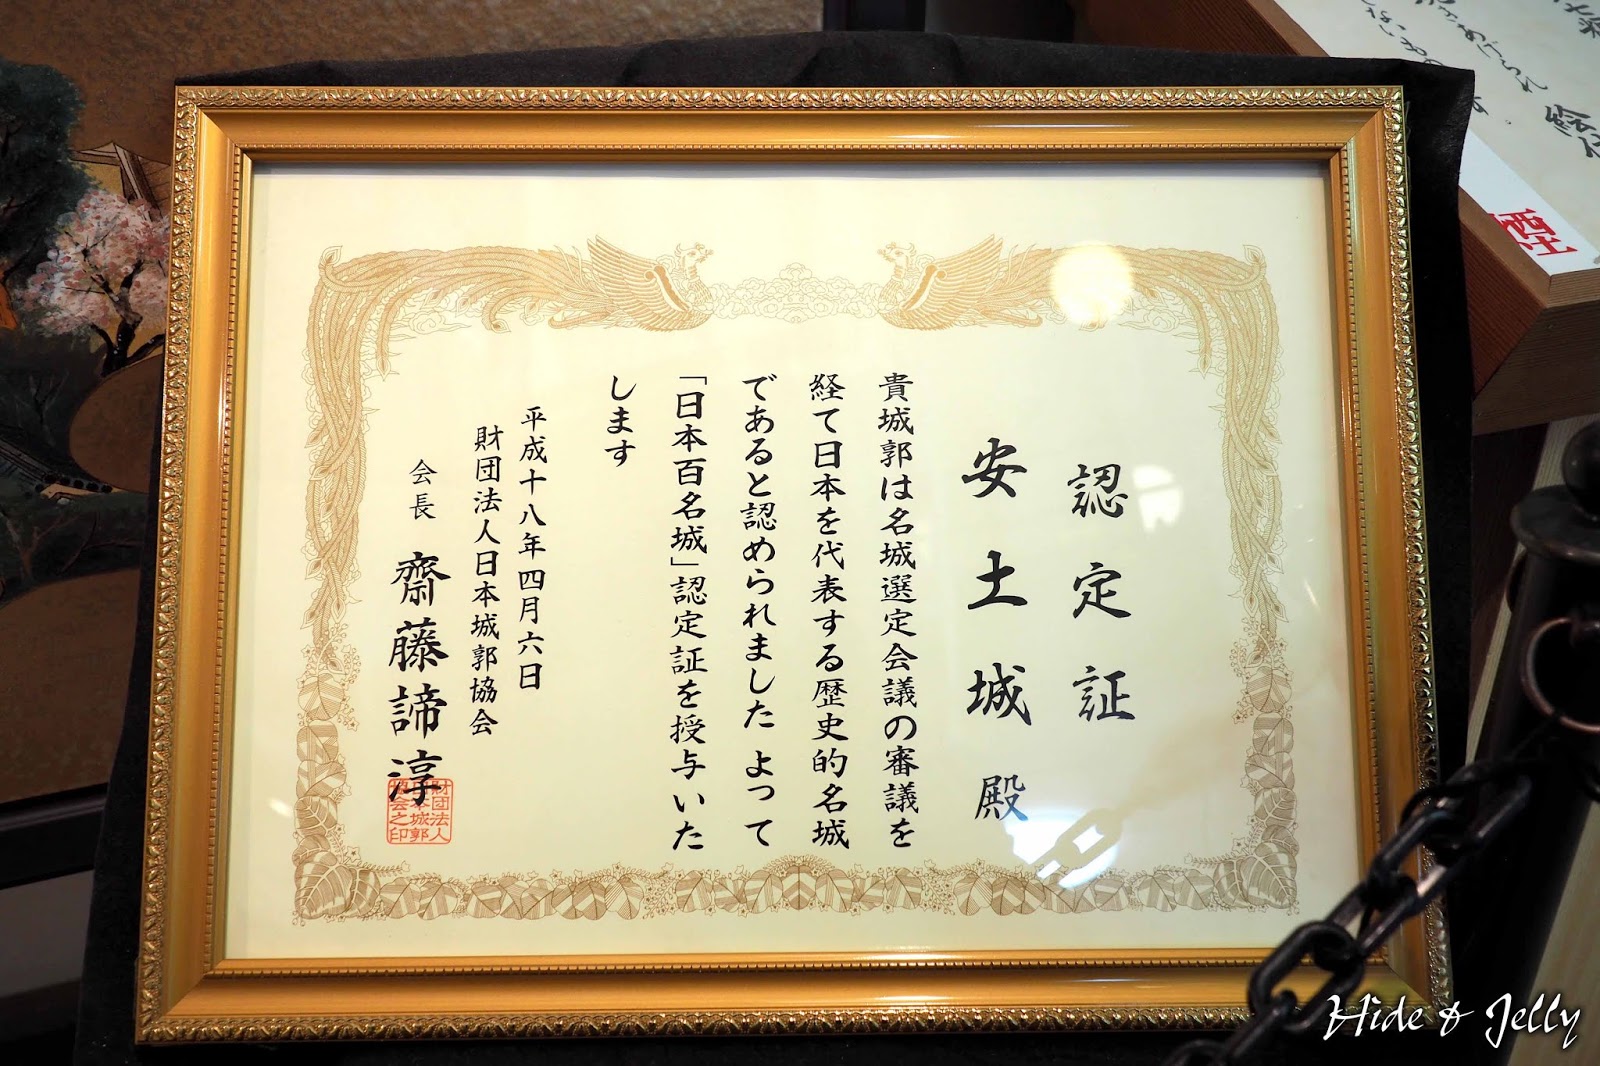 認定証
安土城殿
貴城郭は名城選定会議の審議を
経て日本を代表する歴史的名城
であると認められました よって
「日本百名城」認定証を授与いた
します
平成十八年四月六日
財団法人日本城郭協会
会長 齋藤諦淳
財団法人
日本城郭
協会之印
Hide & Jelly